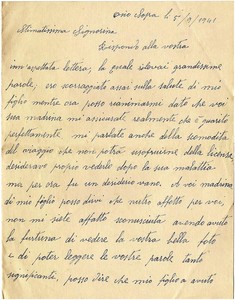 Osio Sopra li 5/9/1941
Stimatissima Signorina
Rispondo alla vostra
inaspettata lettera, la quale rilevai grandissime
parole; ero scoraggiato assai sulla salute di mio
figlio mentre ora posso rianimarmi dato che voi
sua madrina mi assicurate realmente che è guarito
perfettamente. mi parlate anche della scomodità
del viaggio che non potrà usufruire della licenza,
desideravo proprio vederlo dopo la sua malattia
ma per ora fu un desiderio vano. A voi madrina
di mio figlio posso dirvi che nutro affetto per voi,
non mi siete affatto sconosciuta avendo avuto
la fortuna di vedere la vostra bella foto
e di poter leggere le vostre parole tanto
significanti, posso dire che mio figlio a avuto